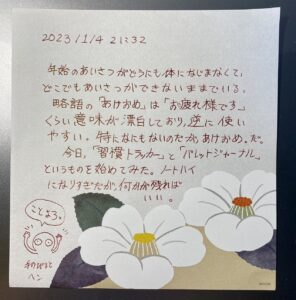 2023/1/4 21:32
年始のあいさつがどうにも体になじまなくて、
どこでもあいさつができないままでいる。
略語の「あけおめ」は「お疲れ様です」
くらい意味が漂白しており、逆に使い
やすい。特になにもないのだが、あけおめ。だ。
今日、「習慣トラッカー」と「バレットジャーナル」
というものを始めてみた。ノートハイ
になりすぎだが、何か残れば
いい。
ことよろ。
ペン